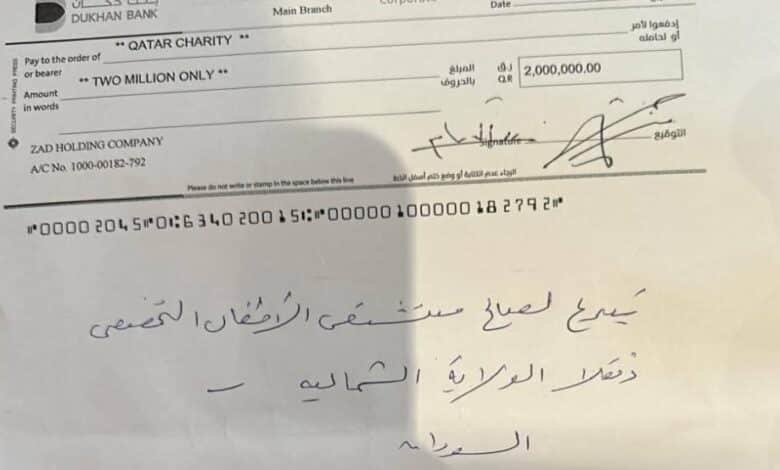 DUKHAN BANK
Main Branch
Date
Pay to the order of
or bearer
** QATAR CHARITY **
إدفعوا لأمر
أو لحامله
** TWO MILLION ONLY **
المبلغ
بالحروف
ر.ق
Q.R
2,000,000.00
Amount
in words
SECURITY PRINTING PRESS
ZAD HOLDING COMPANY
A/C No. 1000-00182-792
Signature
التوقيع
Please do not write or stamp in the space below this line
الرجاء عدم الكتابة أو وضع ختم أسفل الخط
⑈0000 2045⑈0⑆6340 20015⑆⑈00000100000018 2792⑈
تبرع لصالح مستشفى الأطفال التخصصي
دنقلا الولاية الشماليه –
السودان